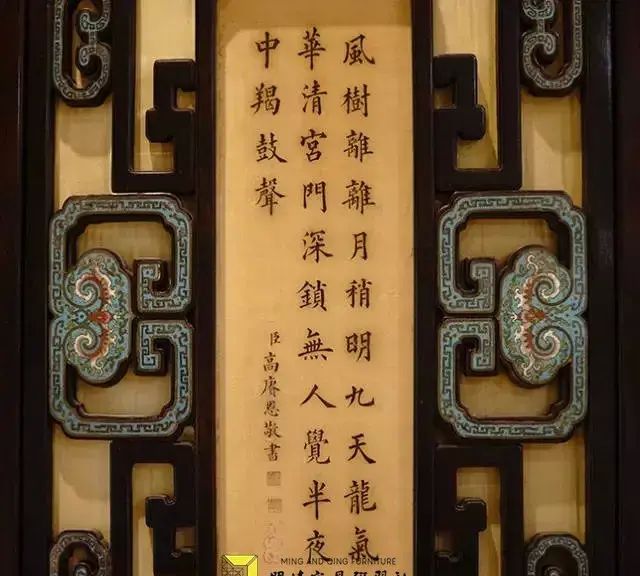 風樹離離月稍明九天龍氣
華清宮門深鎖無人覺半夜
中羯鼓聲
臣高賡恩敬書
MING AND QING FURNITURE